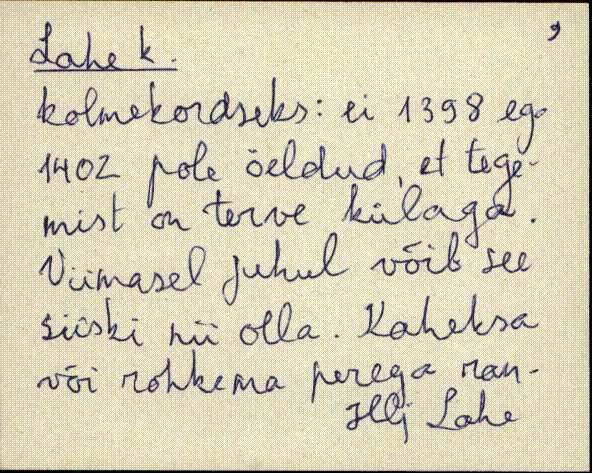 9
Lahe k.
kolmekordseks: ei 1398 ega
1402 pole öeldud, et tege-
mist on terve külaga.
Viimasel juhul võib see
siiski nii olla. Kaheksa
või rohkema perega ran-
Hlj Lahe